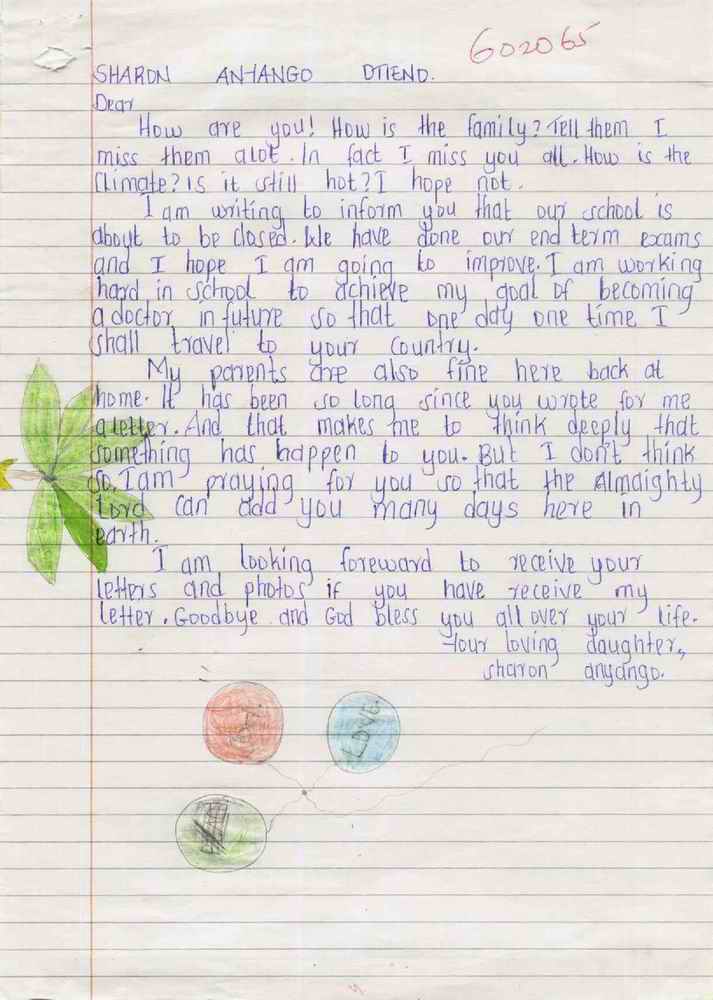 602065
SHARON ANYANGO OTIENO.
Dear
How are you! How is the family? Tell them I
miss them alot. In fact I miss you all. How is the
climate? Is it still hot? I hope not.
I am writing to inform you that our school is
about to be closed. We have done our end term exams
and I hope I am going to improve. I am working
hard in school to achieve my goal of becoming
a doctor in future so that one day one time I
shall travel to your country.
My parents are also fine here back at
home. It has been so long since you wrote for me
a letter. And that makes me to think deeply that
something has happen to you. But I don't think
so. I am praying for you so that the Almaighty
Lord can add you many days here in
earth.
I am looking foreward to receive your
letters and photos if you have receive my
letter. Goodbye and God bless you all over your life.
Your loving daughter,
sharon anyango.
LOVE